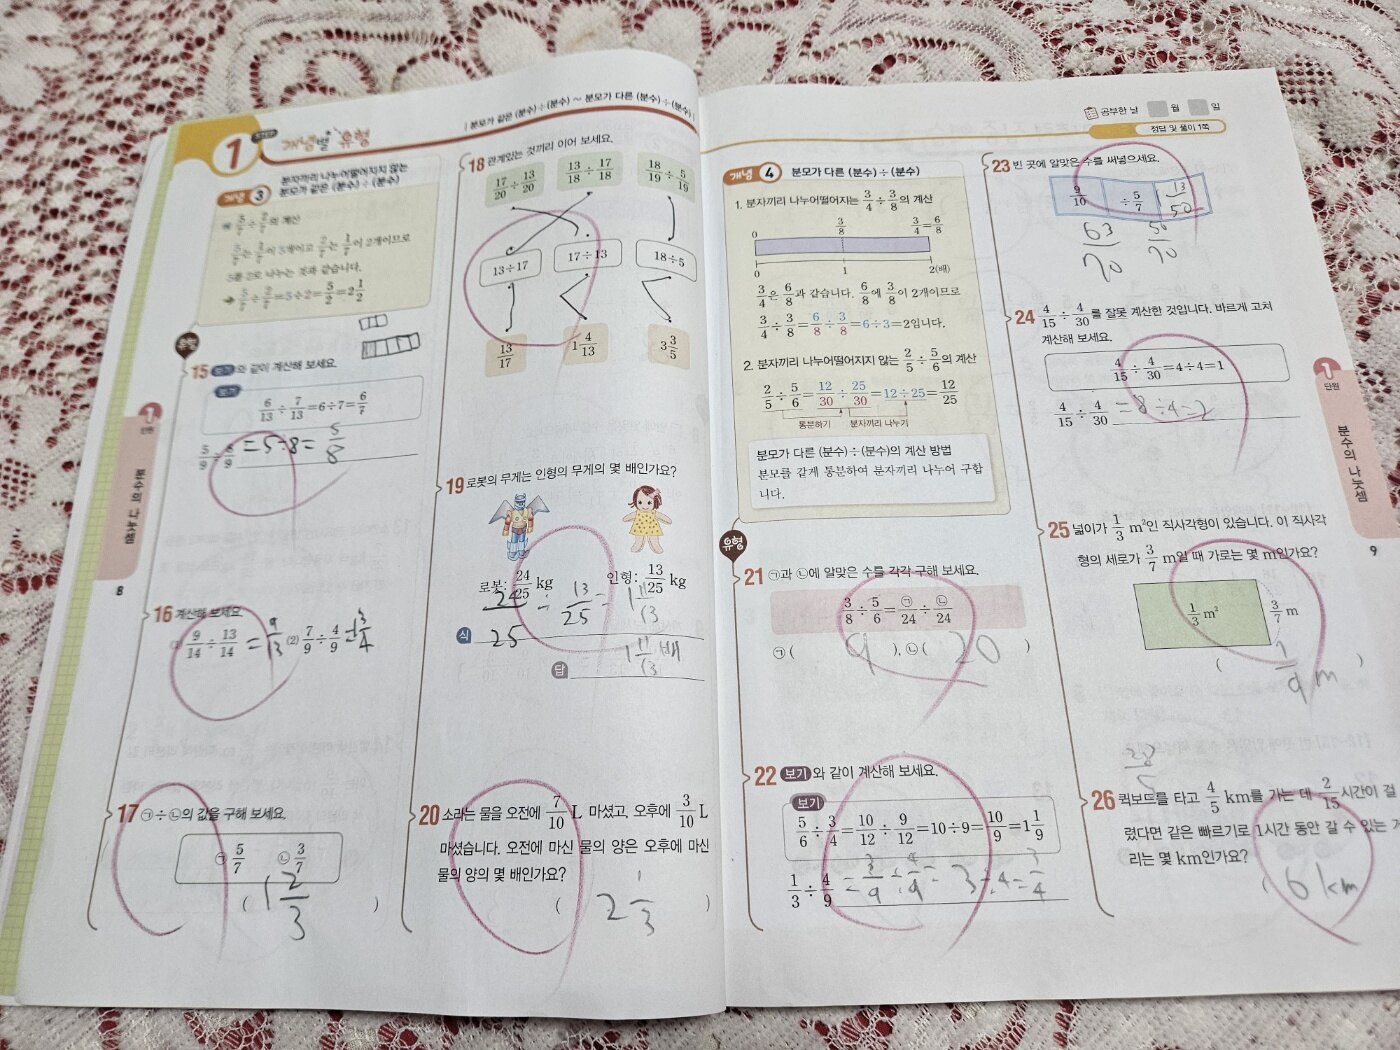 1 STEP 개념별 유형
| 분모가 같은 (분수)÷(분수) ~ 분모가 다른 (분수)÷(분수) |
개념 3 분자끼리 나누어떨어지지 않는
분모가 같은 (분수)÷(분수)
5/7 ÷ 2/7 의 계산
5/7는 1/7이 5개이고 2/7는 1/7이 2개이므로
5를 2로 나누는 것과 같습니다.
5/7 ÷ 2/7 = 5÷2 = 5/2 = 2 1/2
유형
15 보기와 같이 계산해 보세요.
보기
6/13 ÷ 7/13 = 6÷7 = 6/7
5/9 ÷ 8/9 = 5÷8 = 5/8
16 계산해 보세요.
(1) 9/14 ÷ 13/14 = 9/13 (2) 7/9 ÷ 4/9 = 1 3/4
17 ㉠÷㉡의 값을 구해 보세요.
㉠ 5/7 ㉡ 3/7
( 1 2/3 )
1 단원
분수의 나눗셈
8
18 관계있는 것끼리 이어 보세요.
17/20 ÷ 13/20 13/18 ÷ 17/18 18/19 ÷ 5/19
13÷17 17÷13 18÷5
13/17 1 4/13 3 3/5
19 로봇의 무게는 인형의 무게의 몇 배인가요?
로봇: 24/25 kg 인형: 13/25 kg
식 24/25 ÷ 13/25 = 1 11/13
답 1 11/13 배
20 소라는 물을 오전에 7/10 L 마셨고, 오후에 3/10 L
마셨습니다. 오전에 마신 물의 양은 오후에 마신
물의 양의 몇 배인가요?
( 2 1/3 )
공부한 날 월 일
정답 및 풀이 1쪽
개념 4 분모가 다른 (분수)÷(분수)
1. 분자끼리 나누어떨어지는 3/4 ÷ 3/8의 계산
0 3/8 3/4=6/8
0 1 2(배)
3/4은 6/8과 같습니다. 6/8에 3/8이 2개이므로
3/4 ÷ 3/8 = 6/8 ÷ 3/8 = 6÷3 = 2입니다.
2. 분자끼리 나누어떨어지지 않는 2/5 ÷ 5/6의 계산
2/5 ÷ 5/6 = 12/30 ÷ 25/30 = 12÷25 = 12/25
통분하기 분자끼리 나누기
분모가 다른 (분수)÷(분수)의 계산 방법
분모를 같게 통분하여 분자끼리 나누어 구합
니다.
유형
21 ㉠과 ㉡에 알맞은 수를 각각 구해 보세요.
3/8 ÷ 5/6 = ㉠/24 ÷ ㉡/24
㉠ ( 9 ), ㉡ ( 20 )
22 보기와 같이 계산해 보세요.
보기
5/6 ÷ 3/4 = 10/12 ÷ 9/12 = 10÷9 = 10/9 = 1 1/9
1/3 ÷ 4/9 = 3/9 ÷ 4/9 = 3÷4 = 3/4
23 빈 곳에 알맞은 수를 써넣으세요.
9/10 ÷5/7 1 13/50
63/70 50/70
24 4/15 ÷ 4/30를 잘못 계산한 것입니다. 바르게 고쳐
계산해 보세요.
4/15 ÷ 4/30 = 4÷4 = 1
4/15 ÷ 4/30 = 8÷4=2
25 넓이가 1/3 m²인 직사각형이 있습니다. 이 직사각
형의 세로가 3/7 m일 때 가로는 몇 m인가요?
1/3 m² 3/7 m
( 7/9 m )
26 퀵보드를 타고 4/5 km를 가는 데 2/15시간이 걸
렸다면 같은 빠르기로 1시간 동안 갈 수 있는 거
리는 몇 km인가요?
( 6 km
1 단원
분수의 나눗셈
9